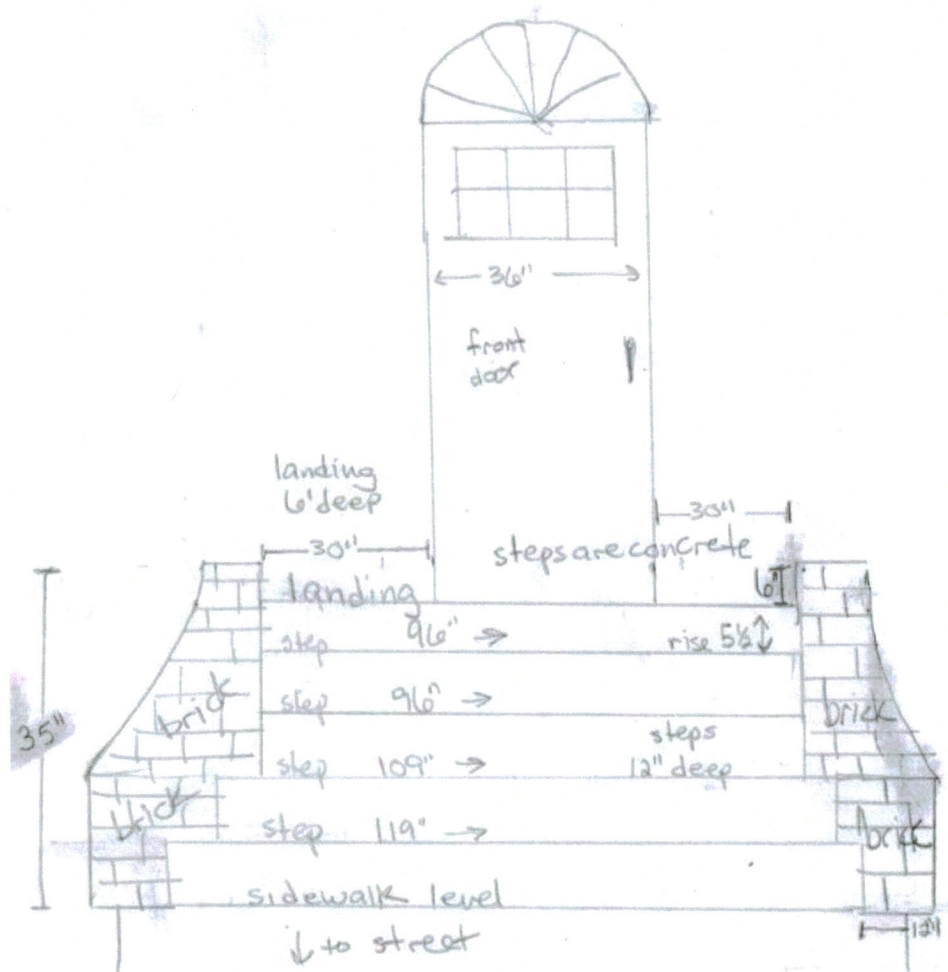 36"
front
door
landing
6' deep
30"
30"
steps are concrete
landing
6"
step 96" →
rise 5½
step 96" →
brick
brick
35"
steps
12" deep
step 109" →
brick
step 119" →
brick
sidewalk level
12"
↓ to street